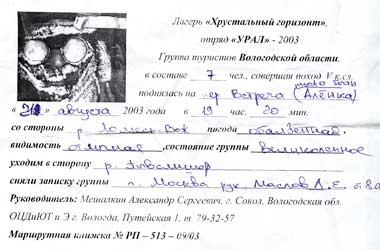 Лагерь «Хрустальный горизонт»,
отряд «УРАЛ» - 2003
Группа туристов Вологодской области,
в составе 7 чел., совершая поход V к.сл.
поднялась на пер Встреча (Алёнка)
« 21 » августа 2003 года в 19 час. 20 мин.
со стороны р. погода
видимость отличная, состояние группы великолепное
уходим в сторону р.
сняли записку группы г. Москва рук. Маслов Д.Е. от 8.0
Руководитель: Мешалкин Александр Сергеевич, г. Сокол, Вологодская обл.
ОЦДиЮТ и Э г. Вологда, Путейская 1, т 79-32-57
Маршрутная книжка № РП – 513 – 09/03